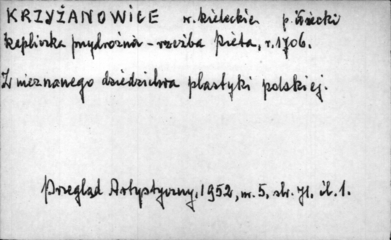 KRZYŻANOWICE w. kieleckie p. Iłżecki
kapliczka przydrożna - rzeźba Pieta, r. 1706.
Z nieznanego dziedzictwa plastyki polskiej.
Przegląd Artystyczny, 1952, nr. 5, str. 71, il. 1.